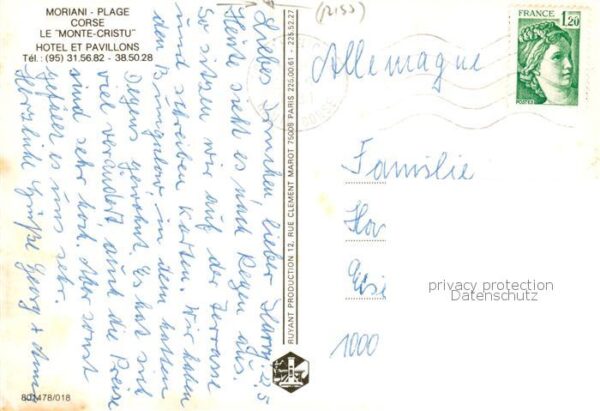 MORIANI - PLAGE
CORSE
LE "MONTE-CRISTU"
HOTEL ET PAVILLONS
Tél.: (95) 31.56.82 - 38.50.28
Liebes lieber Harry. 2.5
Heute sieht es nach Regen aus.
So sitzen wir auf der Terrasse
und schreiben Karten. Wir haben
den Bungalow, in dem hatten
gewohnt. Es hat sich
viel verändert, und die Preise
sind sehr hoch. Aber sonst
gefällt es uns sehr.
Herzliche Grüße Georg +
802478/018
RUYANT PRODUCTION 12, RUE CLEMENT MAROT 75008 PARIS 225.00.61 - 225.52.27
FRANCE
1,20
POSTES
Allemagne
Familie
1000
privacy protection
Datenschutz